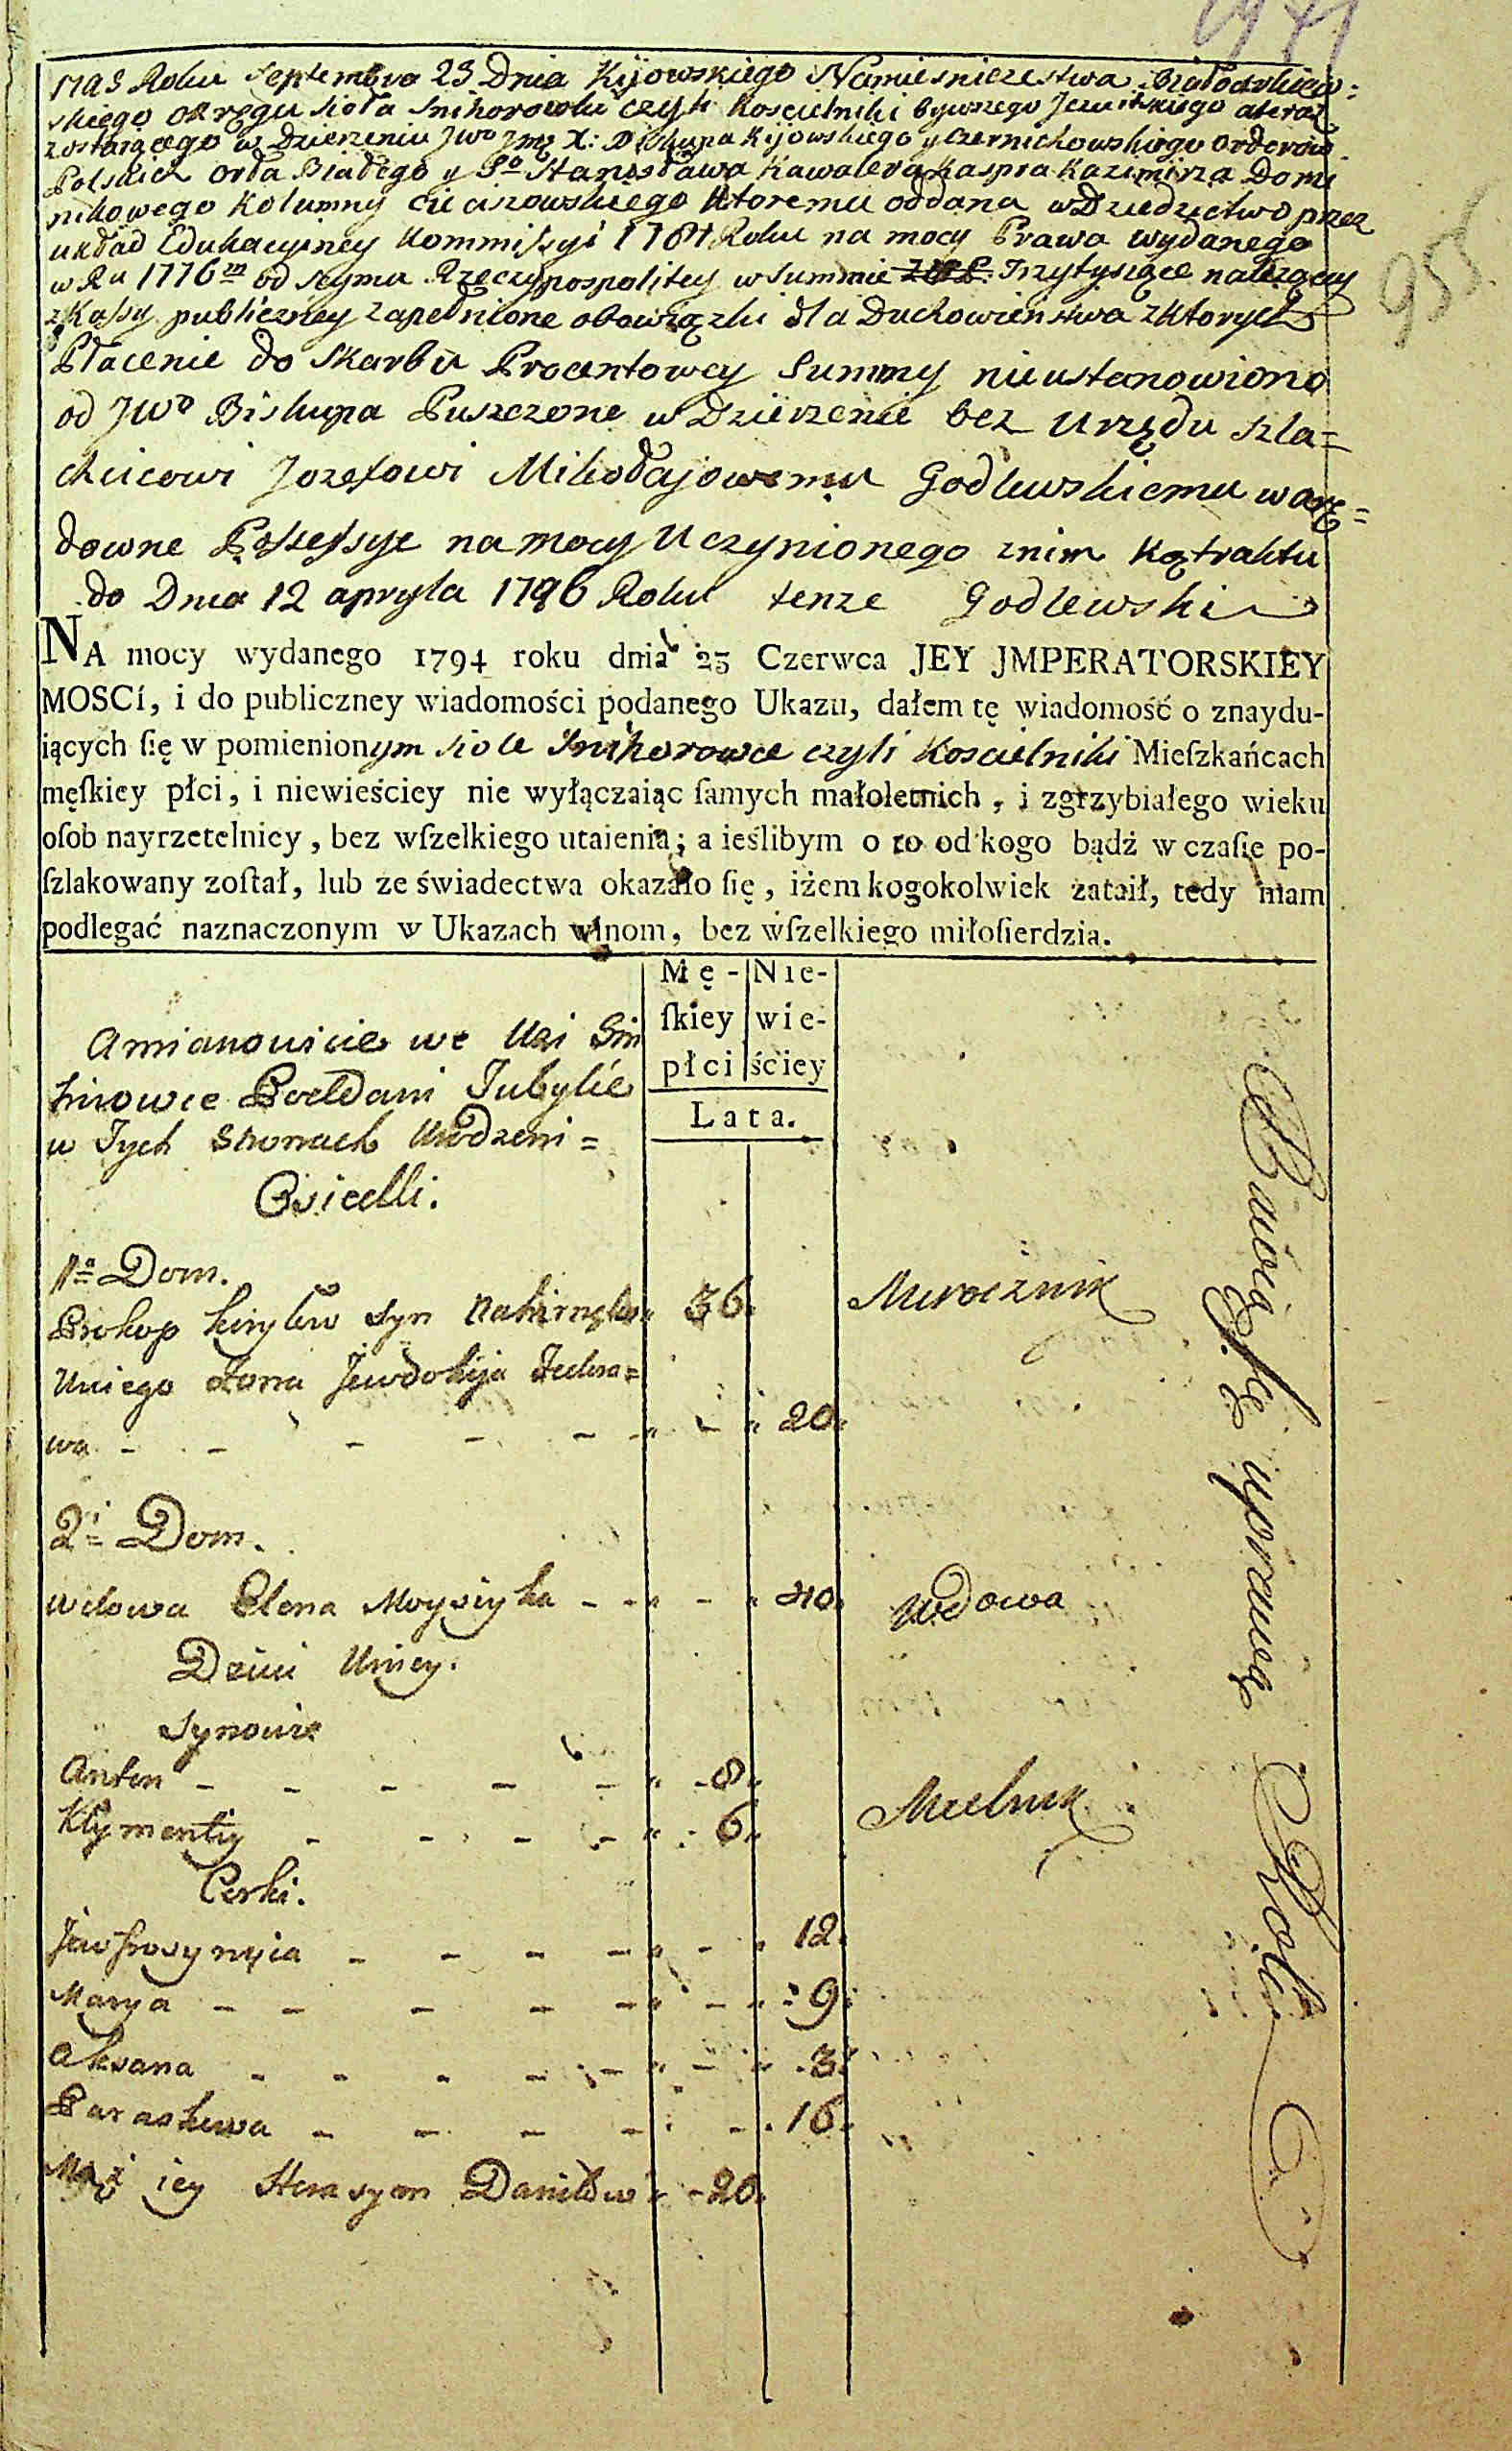 1795 Roku Septembra 23 Dnia Kijowskiego Namiesniczestwa
skiego okręgu sioła Snihorowki czyli Kosciełniki bywszego Jezuitskiego a teraz
zostaiącego w Dzierzeniu JWo Jmę X: Biskupa Kijowskiego y Czernichowskiego orderow
Polskich orła Białego y So Stanisława Kawalera Kaspra Kazimirza Domi
nikowego Kolumny Cieciszowskiego ktoremu oddana w Dziedzictwo przez
układ Edukacyiney Kommissyi 1781 Roku na mocy Prawa wydanego
w Ru 1776m od Seymu Rzeczypospolitey w Summie Trzytysiące należącey
z Kassy publiczney zapełnione obowiązki dla Duchowieństwa z ktorych
Płacenie do Skarbu Procentowey Summy nieustanowiono
od JWo Biskupa Puszczone w Dzierzenie bez Urzędu szla=
chcicowi Jozefowi Mikołajowemu Godlewskiemu w are=
downe Possessye na mocy Uczynionego z nim Kątraktu
do Dnia 12 apryla 1796 Roku tenze Godlewski
NA mocy wydanego 1794 roku dnia 23 Czerwca JEY JMPERATORSKIEY
MOSCí, i do publiczney wiadomości podanego Ukazu, dałem tę wiadomość o znaydu-
iących ſię w pomienionym siole Snihorowce czyli Kosciełniki Mieſzkańcach
męſkiey płci, i niewieściey nie wyłączaiąc ſamych małoletnich, i zgrzybiałego wieku
oſob nayrzetelniey, bez wſzelkiego utaienia; a ieślibym o to od kogo bądź w czaſie po-
ſzlakowany zoſtał, lub ze świadectwa okazało ſię, iżem kogokolwiek zataił, tedy mam
podlegać naznaczonym w Ukazach winom, bez wſzelkiego miłoſierdzia.
Mę-
ſkiey
płci
Nie-
wie-
ściey
Lata.
Amianowicie we Wsi Sni
howce Poddani Tubylcie
w Tych Stronach Urodzeni =
Osiedli.
1o Dom.
Prokop Kiryłów Syn 36. Mirocznik
Uniego Żona Jewdokija
wa - - - - - 20.
2i Dom.
Wdowa Elena Moysiyha - - 40. Wdowa
Dzieci Uniey.
Synowie
Anton - - - - - 8.
Klymentiy - - - - 6. Mielnik
Corki.
Jewfrosynyia - - - - 12.
Marya - - - - - 9.
Aksana - - - - - 3.
Paraskewa - - - - 16.
Mąż iey Herasym Daniłow - 20.
955